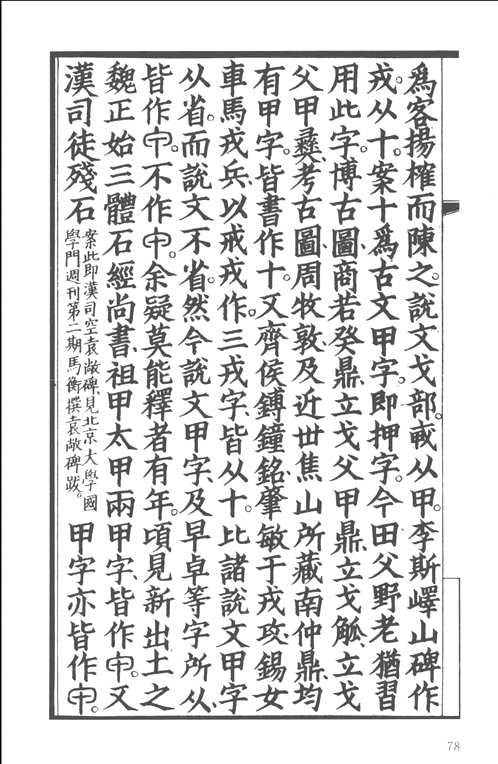 爲客揚榷而陳之。說文戈部。𢦦从甲。李斯嶧山碑作
戎。从十。案十爲古文甲字。即押字。今田父野老猶習
用此字。博古圖、商若癸鼎、立戈父甲鼎、立戈觚、立戈
父甲彝、考古圖、周牧敦、及近世焦山所藏南仲鼎、均
有甲字。皆書作十。又齊侯鎛鐘銘、肇敏于戎攻、錫女
車馬戎兵、以戒戎作。三戎字、皆从十。比諸說文甲字
从省。而說文不省。然今說文甲字、及早卓等字所从、
皆作。不作。余疑莫能釋者有年。頃見新出土之
魏正始三體石經尚書、祖甲太甲兩甲字、皆作。又
漢司徒殘石
案此即漢司空袁敞碑、見北京大學國
學門週刊第二期馬衡撰袁敞碑跋。
甲字亦皆作。
78